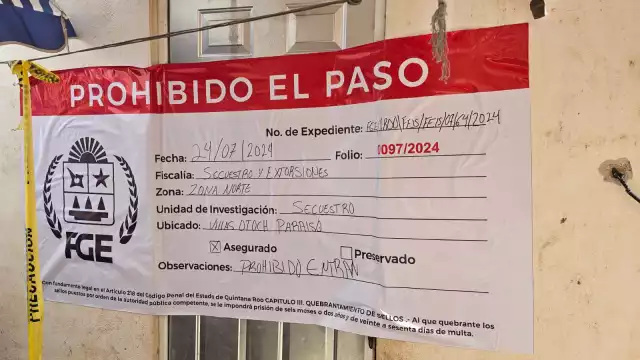 PROHIBIDO EL PASO
No. de Expediente: /FEIS/FEIS/07/64/2024
Fecha: 24/07/2024 Folio: 1097/2024
Fiscalía: SECUESTRO Y EXTORSIONES
Zona: ZONA NORTE
Unidad de Investigación: SECUESTRO
Ubicado: VILLAS OTOCH PARAISO
☒ Asegurado ☐ Preservado
Observaciones: PROHIBIDO ENTRAR
FGE
Con fundamento legal en el Artículo 218 del Código Penal del Estado de Quintana Roo CAPITULO III. QUEBRANTAMIENTO DE SELLOS.- Al que quebrante los
sellos puestos por orden de la autoridad pública competente, se le impondrá prisión de seis meses a dos años y de veinte a sesenta días de multa.
PRECAUCIÓN